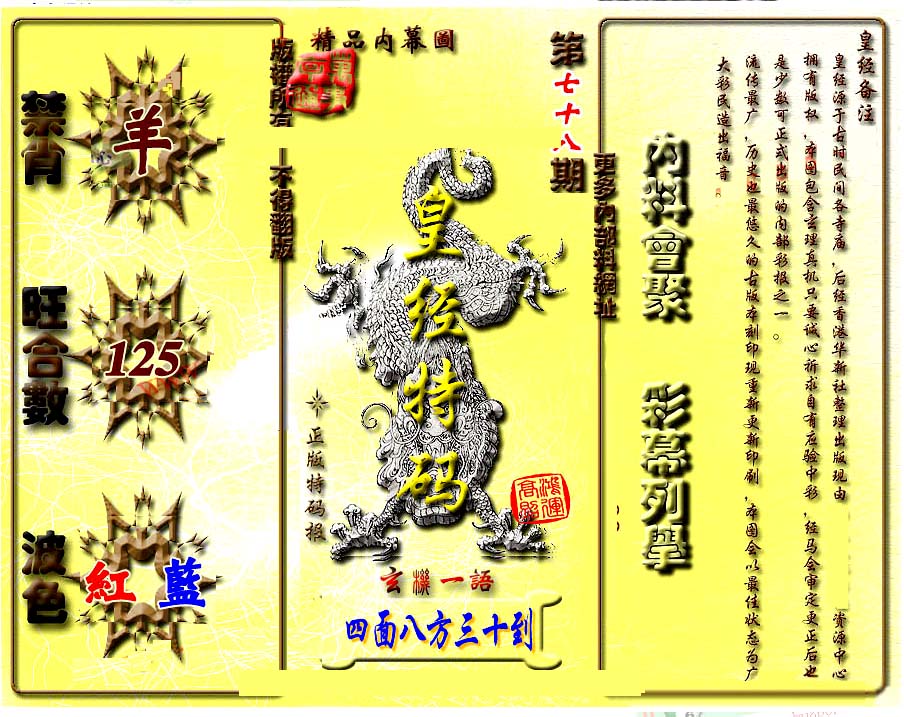 精品内幕圖
版權所有
不得翻版
第七十八期
更多內部料網址
禁肖
羊
旺合數
125
波色
紅 藍
皇经特码
正版特码报
鴻運
高照
玄機一語
四面八方三十到
內料會聚
彩幕列舉
皇经备注
皇经源于古时民间各寺庙，后经香港华新社整理出版现由 资源中心
拥有版权，本图包含玄理真机只要诚心祈求自有应验中彩，经马会审定更正后也
是少数可正式出版的内部彩报之一。
流传最广，历史也最悠久的古版本刻印现重新更新印刷，本图会以最佳状态为广
大彩民造出福音